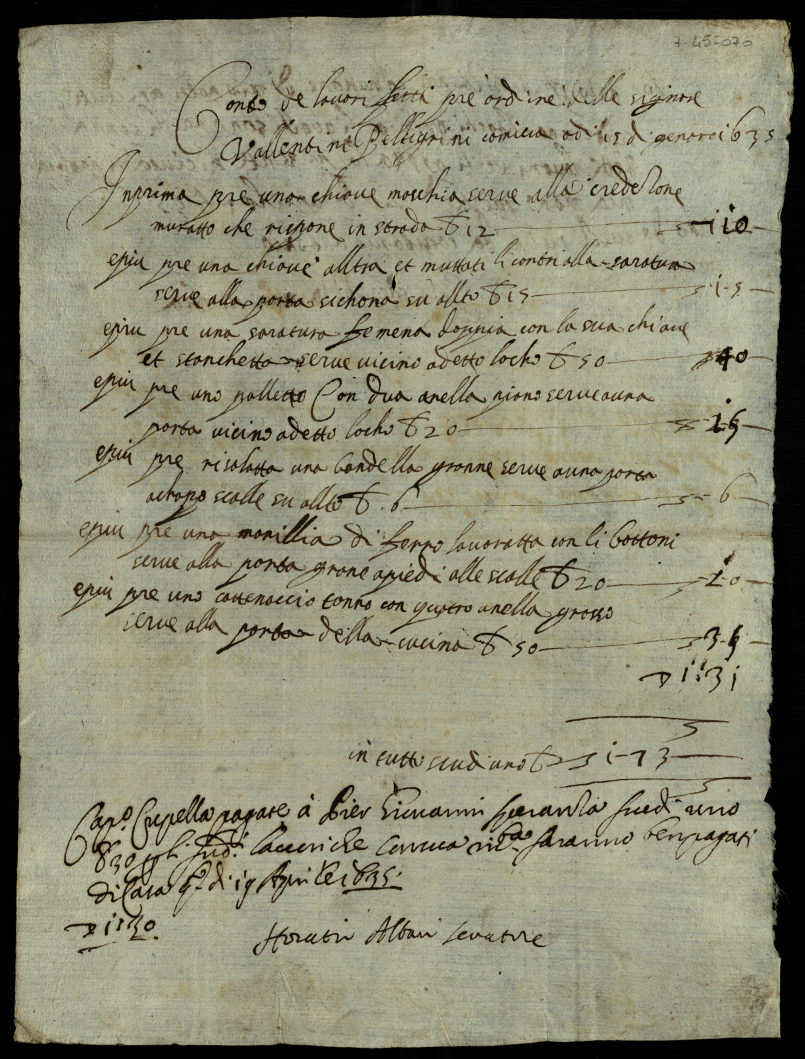 7-45-070
Conto de lavori fatti pre ordine delle signore
Vallentini Pelligrini comicia adi 15 di genaro 1635
Inprima pre una chiave maschia serve alla credezone
muratto che rispone in strada 12 — 10
epiu pre una chiave alltra et muttati li contri alla saratura
serve alla porta sichona su allto 15 — 1-5
epiu pre una saratura femena doppia con la sua chiave
et stanchetta serve vicino adetto locho 50 — 40
epiu pre uno palletto Con dua anella piano serve a una
porta vicino adetto locho 20 — 15
epiu pre risalatta una bandella granne serve a una porta
acapo scalle su allto 6 — 6
epiu pre una manillia di ferro lavoratta con li bottoni
serve alla porta grane apiedi alle scalle 20 — 10
epiu pre uno cattenaccio tonno con quatro anella grosso
serve alla porta della cucina 50 — 35
1:31
in tutto scudi uno 1-73
Cap.o Cupella pagate à Pier Giovanni Speranza scudi uno
30 lavori che saranno ben pagati
di Casa q.o di 19 Aprile 1635
1:30
Horatio Albani senatore